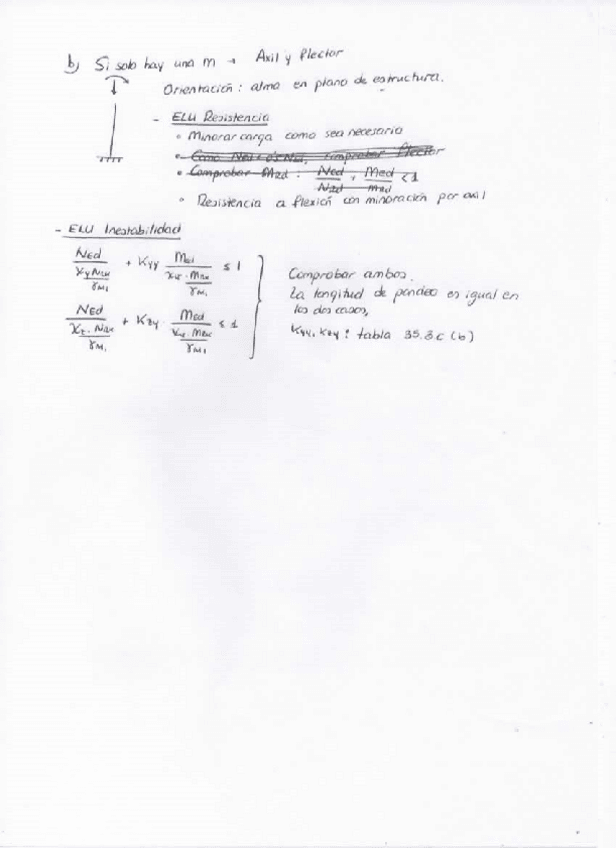 b) Si solo hay una M → Axil y flector
Orientación: alma en plano de estructura.
- ELU Resistencia
• Minorar carga como sea necesario
• Comprobar Med : Ned/Nrd + Med/Mrd < 1
• Resistencia a flexión con minoración por axil
- ELU Inestabilidad
NEd / (χy NRk / γM1) + Kyy MEd / (χLT · MRk / γM1) ≤ 1
NEd / (χz · NRk / γM1) + Kzy · MEd / (χLT · MRk / γM1) ≤ 1
Comprobar ambos.
La longitud de pandeo es igual en
los dos casos,
Kyy, Kzy : tabla 35.3 c (b)